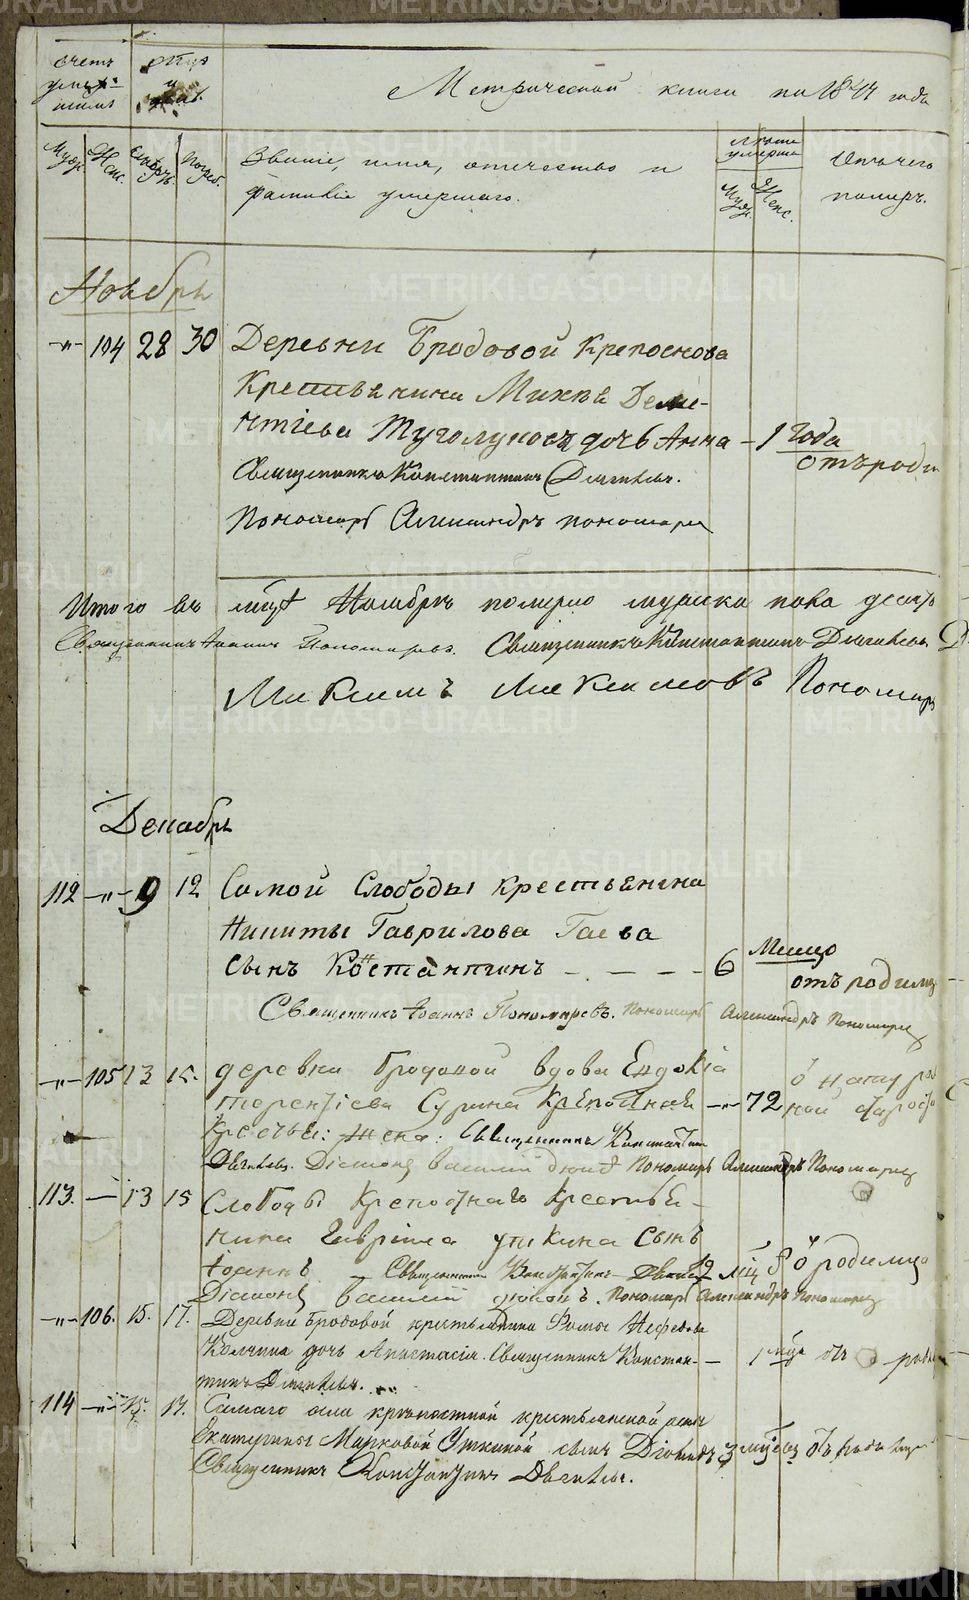 METRIKI.GASO-URAL.RU
счетъ умершихъ
Метрической книги на 1844 года
Муж. Женс.
Звание, имя, отечество и фамилiя умершаго.
лета умерша
Муж. Женс.
Отъ чего померъ.
Ноябрь
-"- 104 28 30 Деревни Бродовой Крепоснова
Крестьянина Михея Деме-
нтiева Туголукова дочь Анна - 1 года
отъ роди
Священникъ Константинъ Дягилевъ.
Пономарь Александръ пономаре
Итого въ Ноябрѣ померло мужска пола десят
Священникъ Iоаннъ Пономаревъ. Священникъ Константинъ Дягилевъ. Д
Максимъ Максимовъ Пономарь
Декабрь
112 -"- 9 12 Самой Слободы крестьянина
Никиты Гаврилова Гаева
сынъ Константинъ - - - - 6 Месяцо
отъ родимц
Священникъ Iоаннъ Пономаревъ. Пономарь Александръ Пономарев
-"- 105 13 15. деревни Бродовой вдова Евдокiа
терентiева Сурина Крепостная -"- 72 о натурал
ной старосто
Крестья: жена: Священникъ Константинъ
Дягилевъ. Дiаконъ Василiй Пономарь Александръ Пономарев
113. — 13 15 Слободы Крепостнаго Крестья-
нина Гаврiила Уткина Сынъ
Iоаннъ Священникъ Константинъ 12 мѣц о родимцо
Дiаконъ Василiй Пономарь Александръ Пономарев
-"- 106. 15. 17. Деревни Бродовой крестьянина Фомы Нефедова
Колчина дочь Анастасiя. Священникъ Констан- — 1 отъ роди
тинъ Дягилевъ.
114 -"- 15. 17. Самаго села крѣпостной крестьянской
Екатерины Марковой Уткиной сынъ 3 отъ родимц
Священникъ Константинъ Дягилевъ.